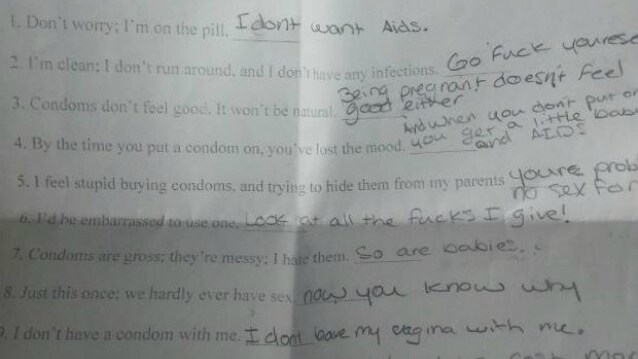 1. Don't worry; I'm on the pill. I dont want Aids.
2. I'm clean; I don't run around, and I don't have any infections. Go fuck
Being pregnant doesn't feel
3. Condoms don't feel good. It won't be natural. good either
And when you don't put
4. By the time you put a condom on, you've lost the mood. you get a little
and AIDS
5. I feel stupid buying condoms, and trying to hide them from my parents youre
no sex for
6. I'd be embarrassed to use one. Look at all the fucks I give!
7. Condoms are gross; they're messy; I hate them. So are babies.
8. Just this once; we hardly ever have sex. now you know why
9. I don't have a condom with me. I dont have my vagina with me.